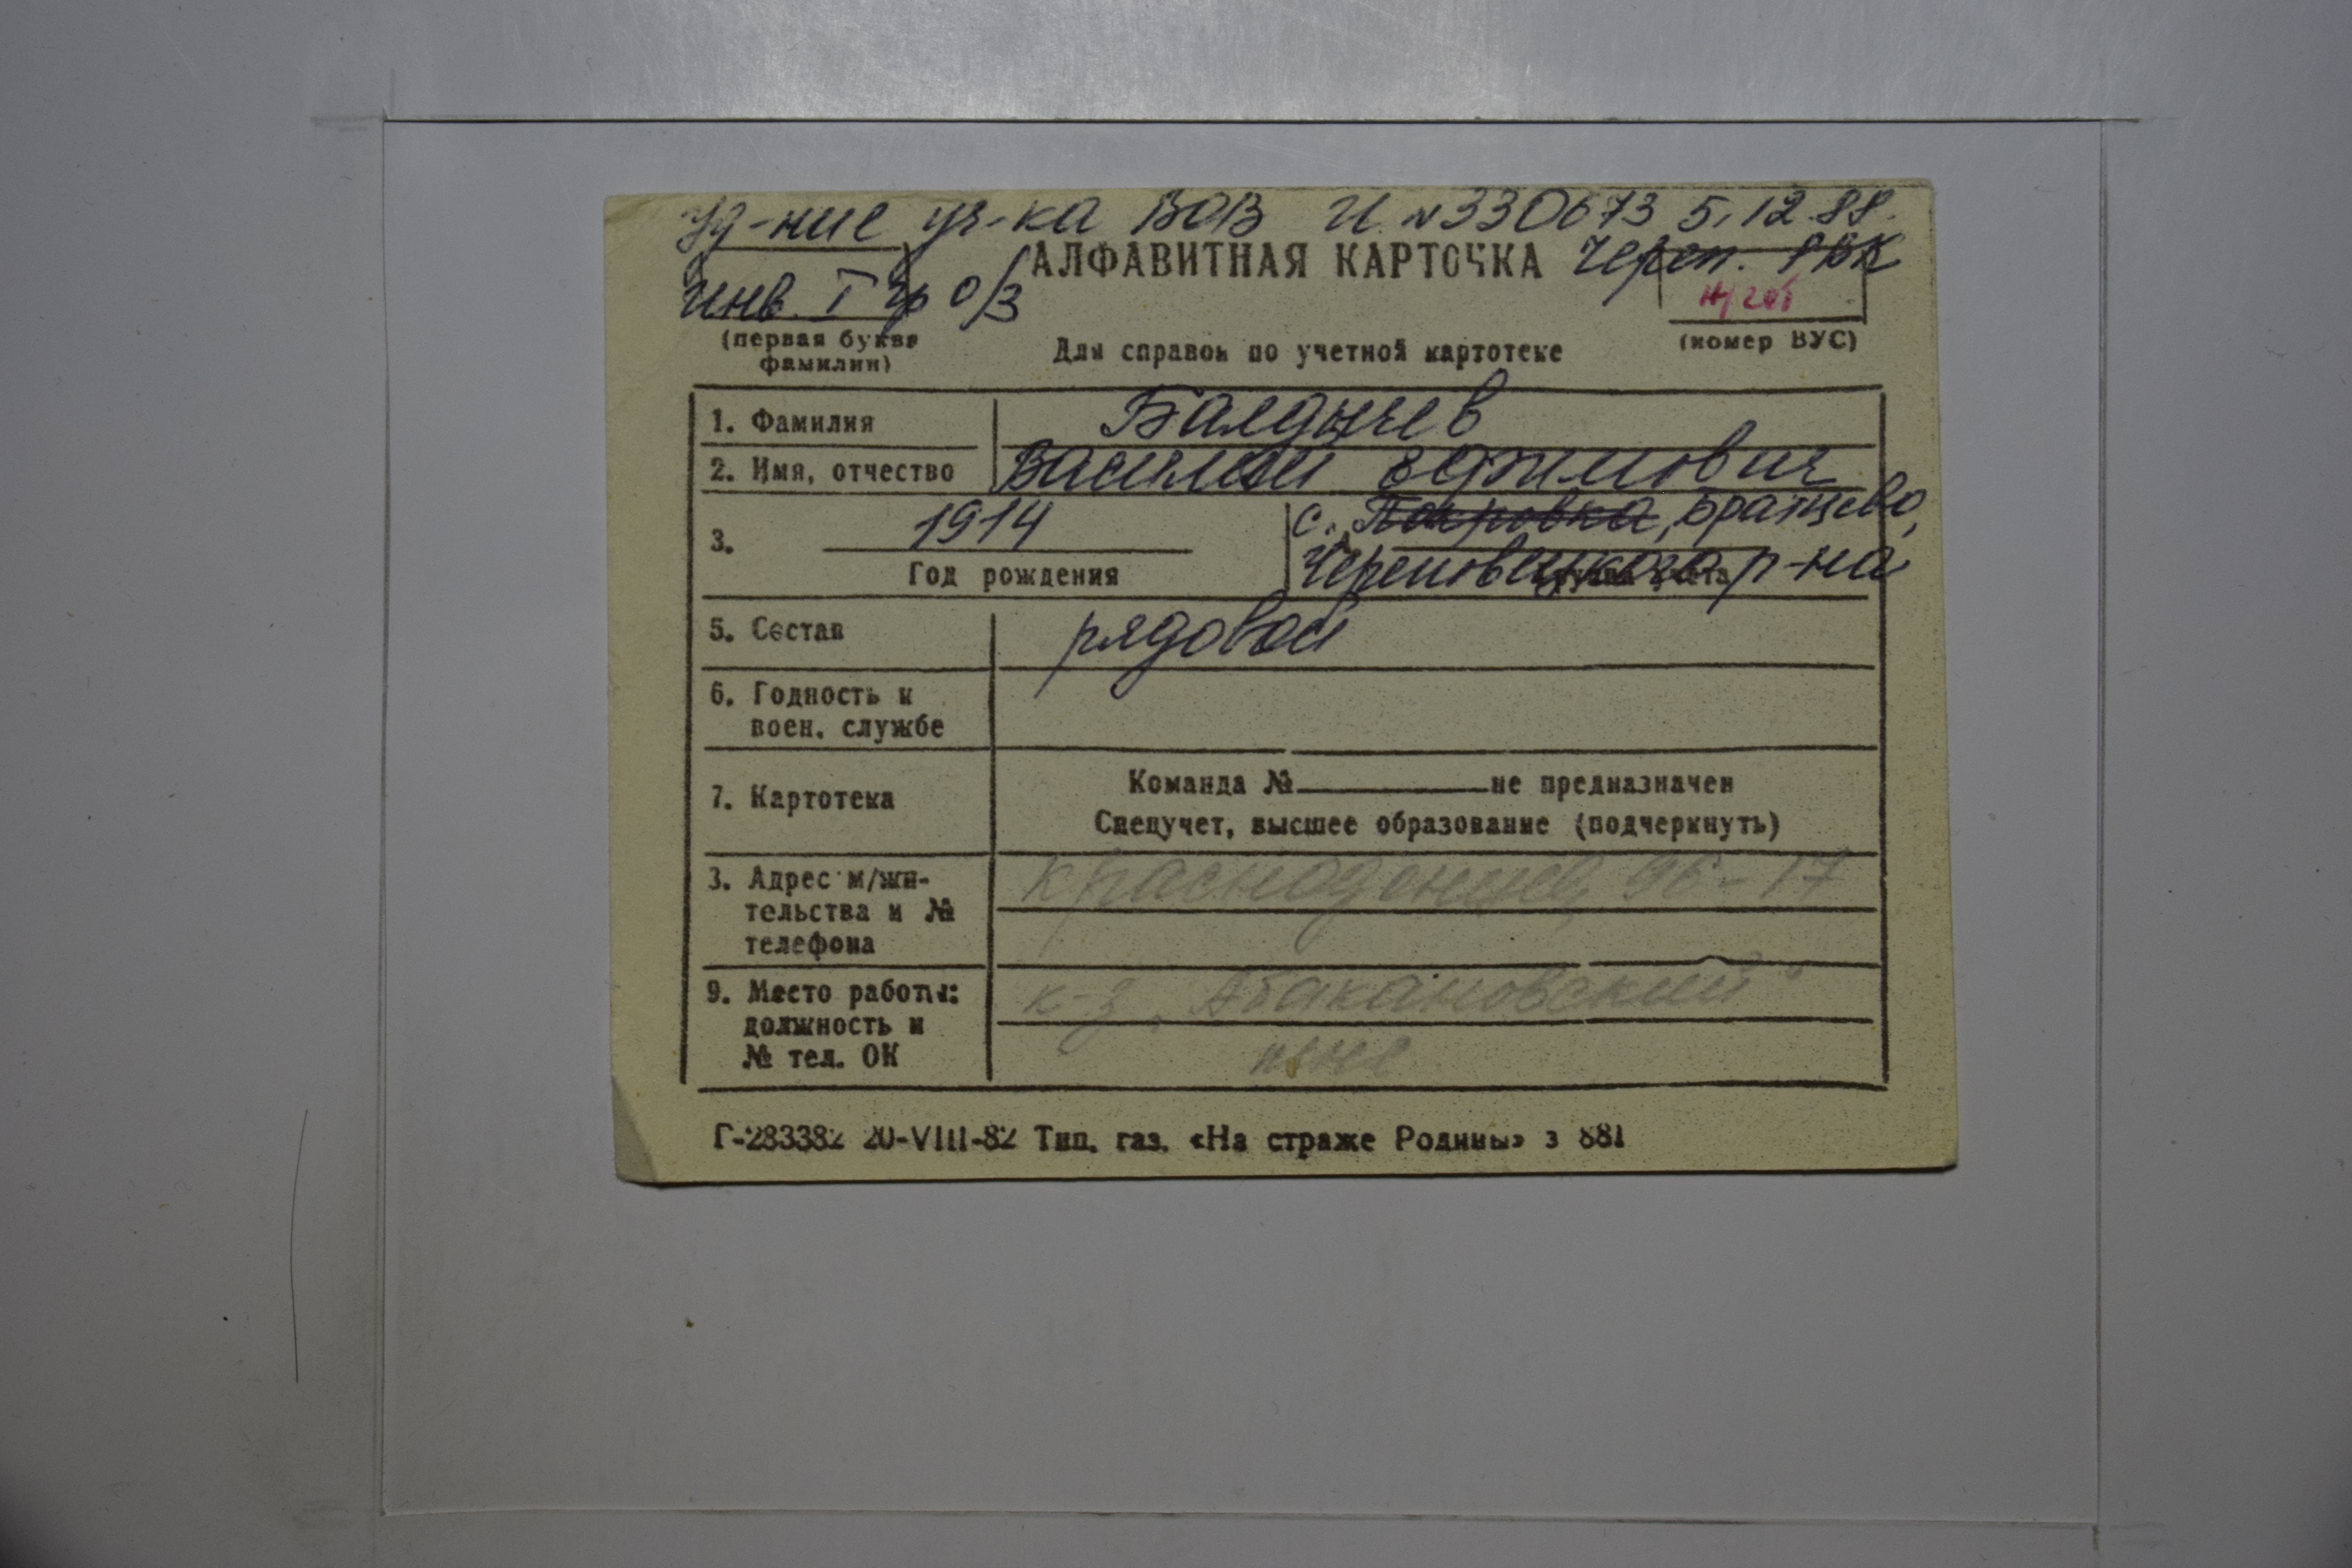 Уд-ние уч-ка ВОВ И №330673 5.12.88.
АЛФАВИТНАЯ КАРТОЧКА Череп. РВК
Инв. I гр о/з
(первая буква фамилии)
Для справок по учетной картотеке
(номер ВУС)
1. Фамилия Балдычев
2. Имя, отчество Василий Ефимович
3. 1914 с. Покровка, Братцево,
Год рождения Череповецкого р-на
5. Состав рядовой
6. Годность к
воен. службе
7. Картотека
Команда № не предназначен
Спецучет, высшее образование (подчеркнуть)
3. Адрес м/жи-
тельства и №
телефона
Краснодонцев 96-17
9. Место работы:
должность и
№ тел. ОК
к-з „Абакановский"
Г-283382 20-VIII-82 Тип. газ. «На страже Родины» з 881